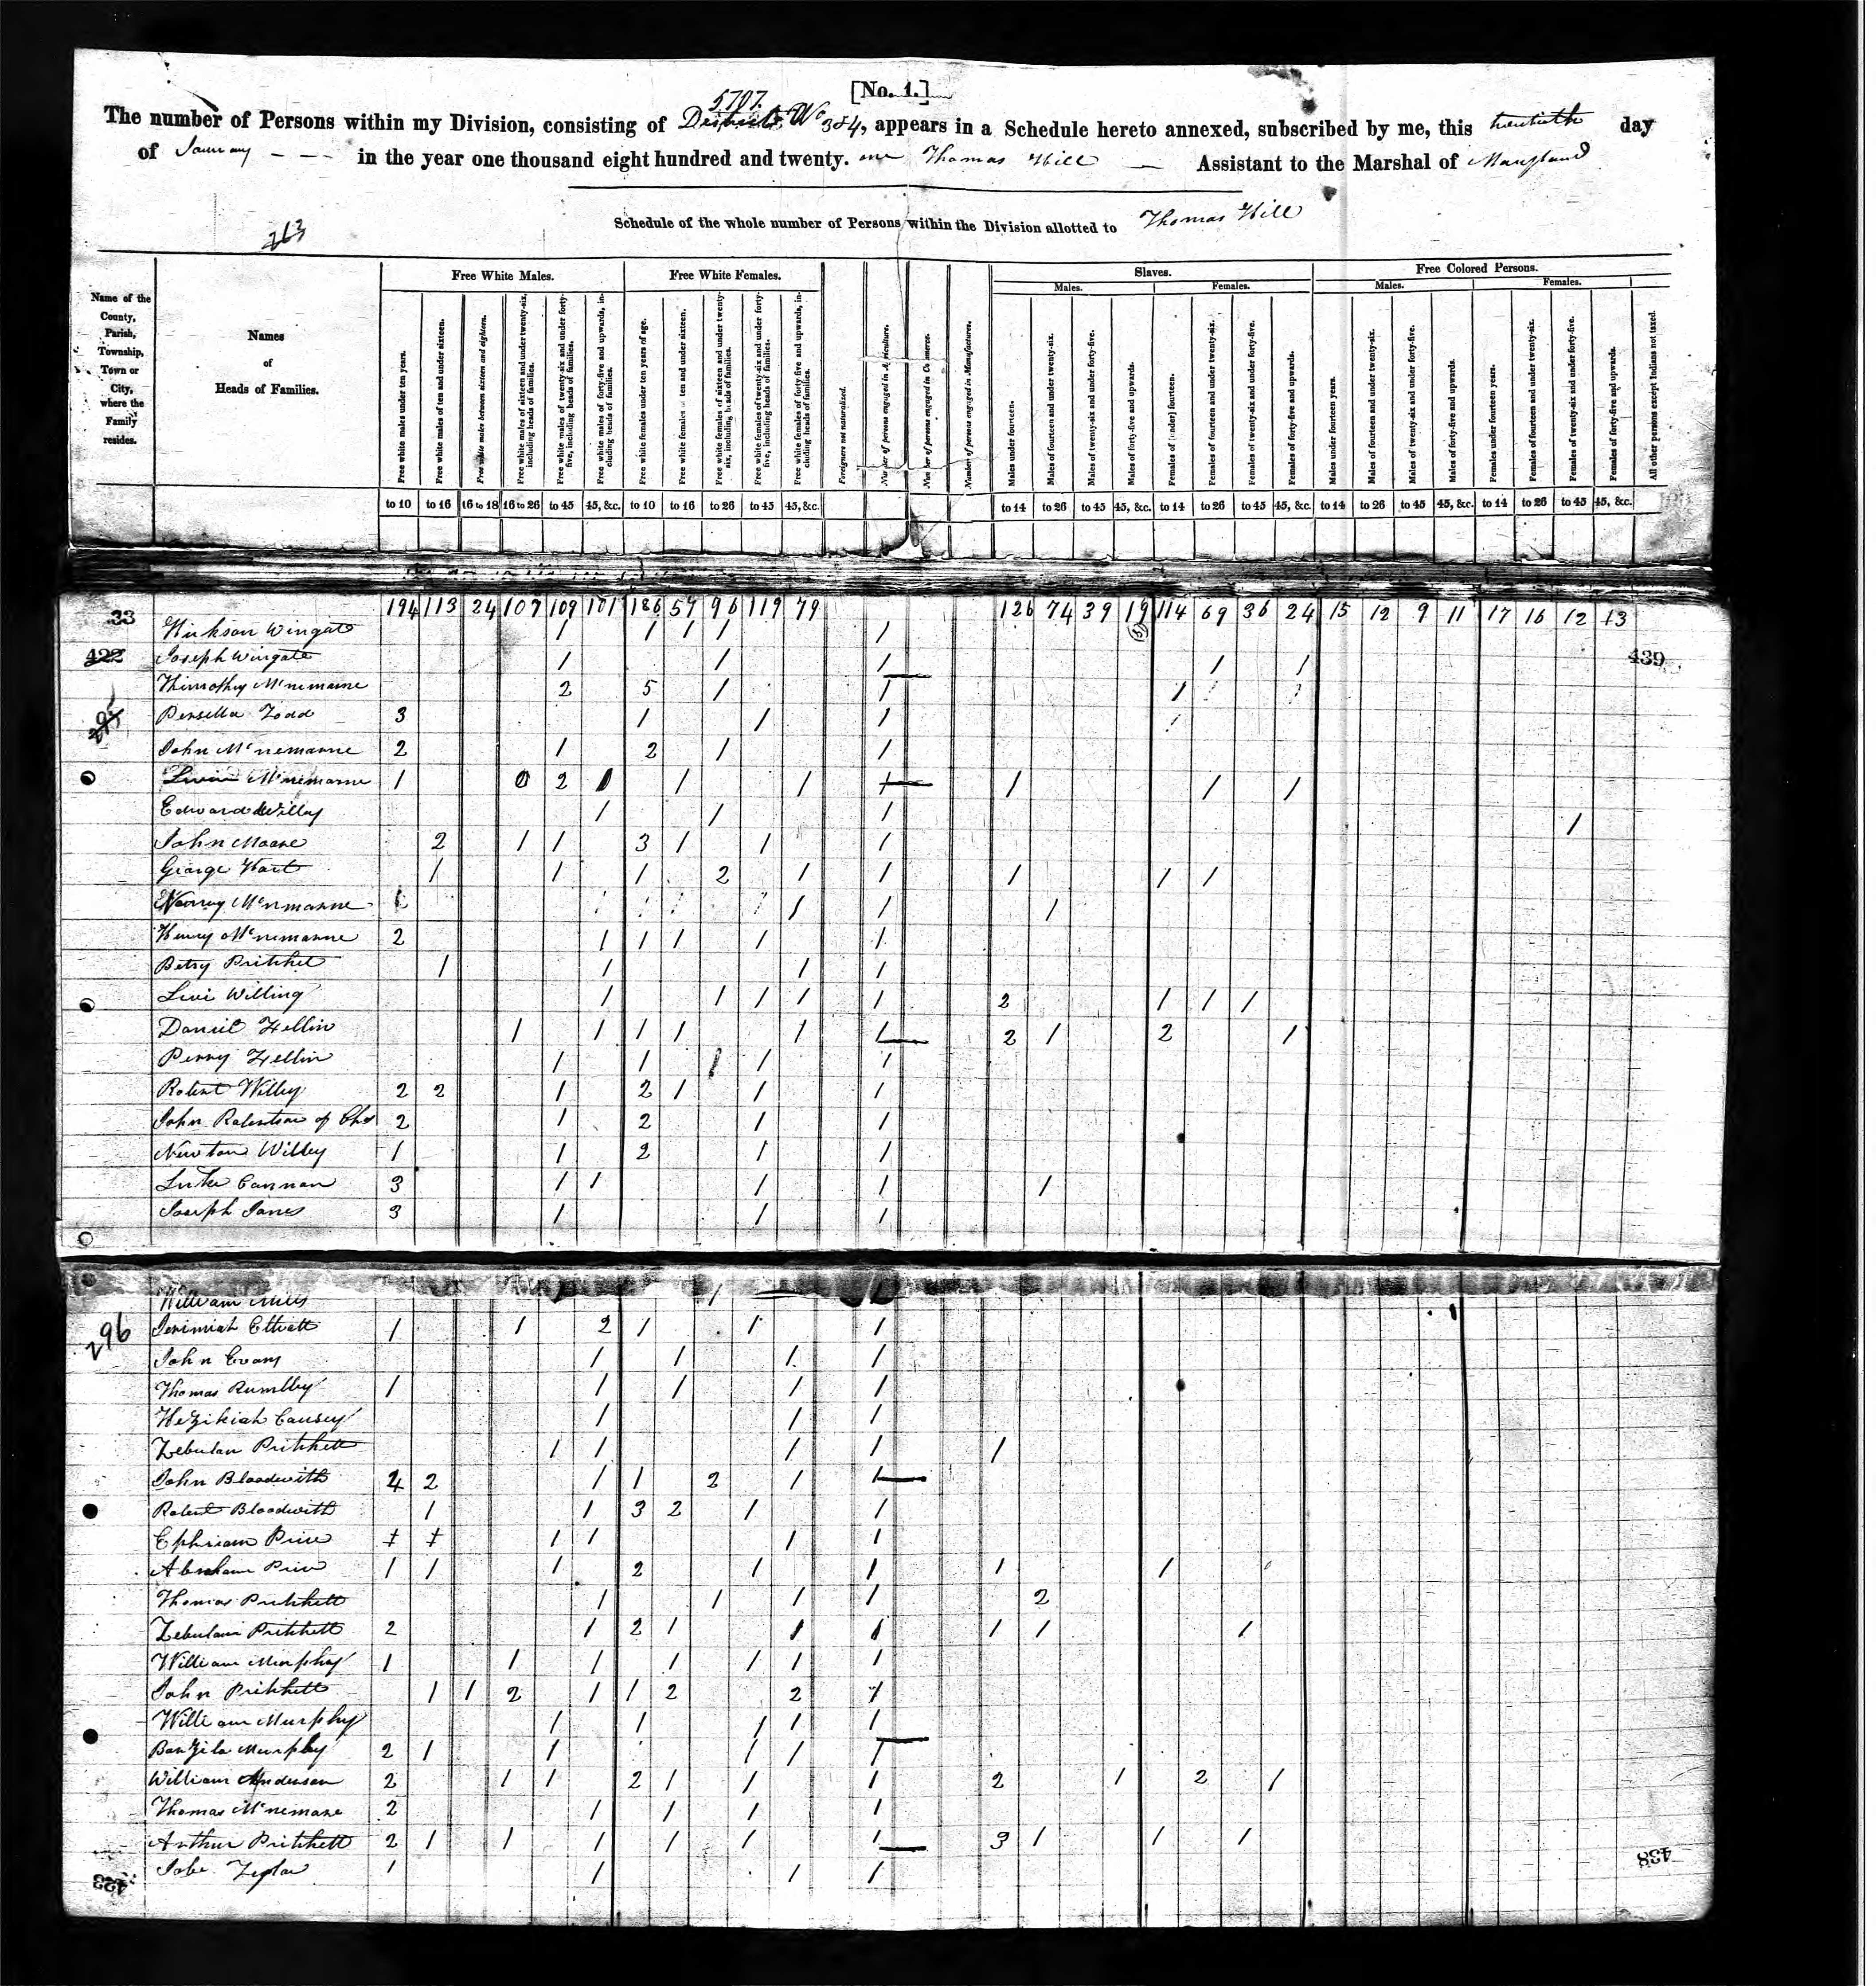 [No. 1.]
5707.
The number of Persons within my Division, consisting of Districts No 3&4, appears in a Schedule hereto annexed, subscribed by me, this twentieth day
of January - - - in the year one thousand eight hundred and twenty. one Thomas Hill — Assistant to the Marshal of Maryland
Schedule of the whole number of Persons within the Division allotted to Thomas Hill
263
Name of the County, Parish, Township, Town or City, where the Family resides.
Names of Heads of Families.
Free White Males. Free White Females. Slaves. Free Colored Persons.
Males. Females. Males. Females.
Free white males under ten years.
Free white males of ten and under sixteen.
Free white males between sixteen and eighteen.
Free white males of sixteen and under twenty-six, including heads of families.
Free white males of twenty-six and under forty-five, including heads of families.
Free white males of forty-five and upwards, including heads of families.
Free white females under ten years of age.
Free white females of ten and under sixteen.
Free white females of sixteen and under twenty-six, including heads of families.
Free white females of twenty-six and under forty-five, including heads of families.
Free white females of forty-five and upwards, including heads of families.
Foreigners not naturalized.
Number of persons engaged in Agriculture.
Number of persons engaged in Commerce.
Number of persons engaged in Manufactures.
Males under fourteen.
Males of fourteen and under twenty-six.
Males of twenty-six and under forty-five.
Males of forty-five and upwards.
Females of [under] fourteen.
Females of fourteen and under twenty-six.
Females of twenty-six and under forty-five.
Females of forty-five and upwards.
Males under fourteen years.
Males of fourteen and under twenty-six.
Males of twenty-six and under forty-five.
Males of forty-five and upwards.
Females under fourteen years.
Females of fourteen and under twenty-six.
Females of twenty-six and under forty-five.
Females of forty-five and upwards.
All other persons except Indians not taxed.
to 10 to 16 16 to 18 16 to 26 to 45 45, &c. to 10 to 16 to 26 to 45 45, &c. to 14 to 26 to 45 45, &c. to 14 to 26 to 45 45, &c. to 14 to 26 to 45 45, &c. to 14 to 26 to 45 45, &c.
33 194 113 24 107 109 101 186 57 96 119 79 126 74 39 19 114 69 36 24 15 12 9 11 17 16 12 13
Hickson Wingate 1 1 1 1 1
422 Joseph Wingate 1 1 1 1 1 439
Thimothy Mcnemarre 2 5 1 1 1
295 Persilla Todd 3 1 1 1
John Mcnemarre 2 1 2 1 1
Mcnemarre 1 0 2 1 1 1 1 1 1 1
Edward Willey 1 1 1 1
John Moore 2 1 1 3 1 1 1
George Hart 1 1 1 2 1 1 1 1 1
Mcnemarre 1 1 1
Henry Mcnemarre 2 1 1 1 1 1
Betsy Pritchet 1 1 1 1
Levi Willing 1 1 1 1 1 2 1 1 1
Daniel 1 1 1 1 1 1 2 1 2 1
Perry 1 1 1 1 1
Robert Willey 2 2 1 2 1 1 1
John Robertson of Chs 2 1 2 1 1
Newton Willey 1 1 2 1 1
Luther Cannan 3 1 1 1 1 1
Joseph Jones 3 1 1 1
William Mills 1 1 1
296 Jerimiah Elliott 1 1 2 1 1 1
John Evans 1 1 1 1
Thomas Rumbley 1 1 1 1 1
Hezikiah Causey 1 1 1
Zebulan Pritchett 1 1 1 1 1
John Bloodwith 4 2 1 1 2 1 1
Robert Bloodwith 1 1 3 2 1 1
Ephriam Price 1 1 1 1
Abraham Price 1 1 1 2 1 1 1 1
Thomas Pritchett 1 1 1 1 2
Zebulan Pritchett 2 1 2 1 1 1 1 1 1
William Murphy 1 1 1 1 1 1 1
John Pritchett 1 1 2 1 1 2 2 1
William Murphy 1 1 1 1 1
Murphy 2 1 1 1 1 1
William Anderson 2 1 1 2 1 1 1 2 1 2 1
Thomas Mcnemare 2 1 1 1 1
Arthur Pritchett 2 1 1 1 1 1 1 3 1 1 1
Jobe 1 1 1 1
423 438